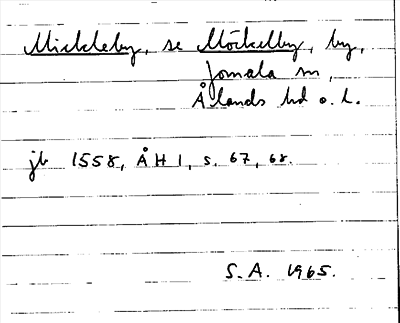 Mickleby, se Möckelby, by,
Jomala sn,
Ålands hd o. l.
jb 1558, ÅH 1, s. 67, 68.
S.A. 1965.